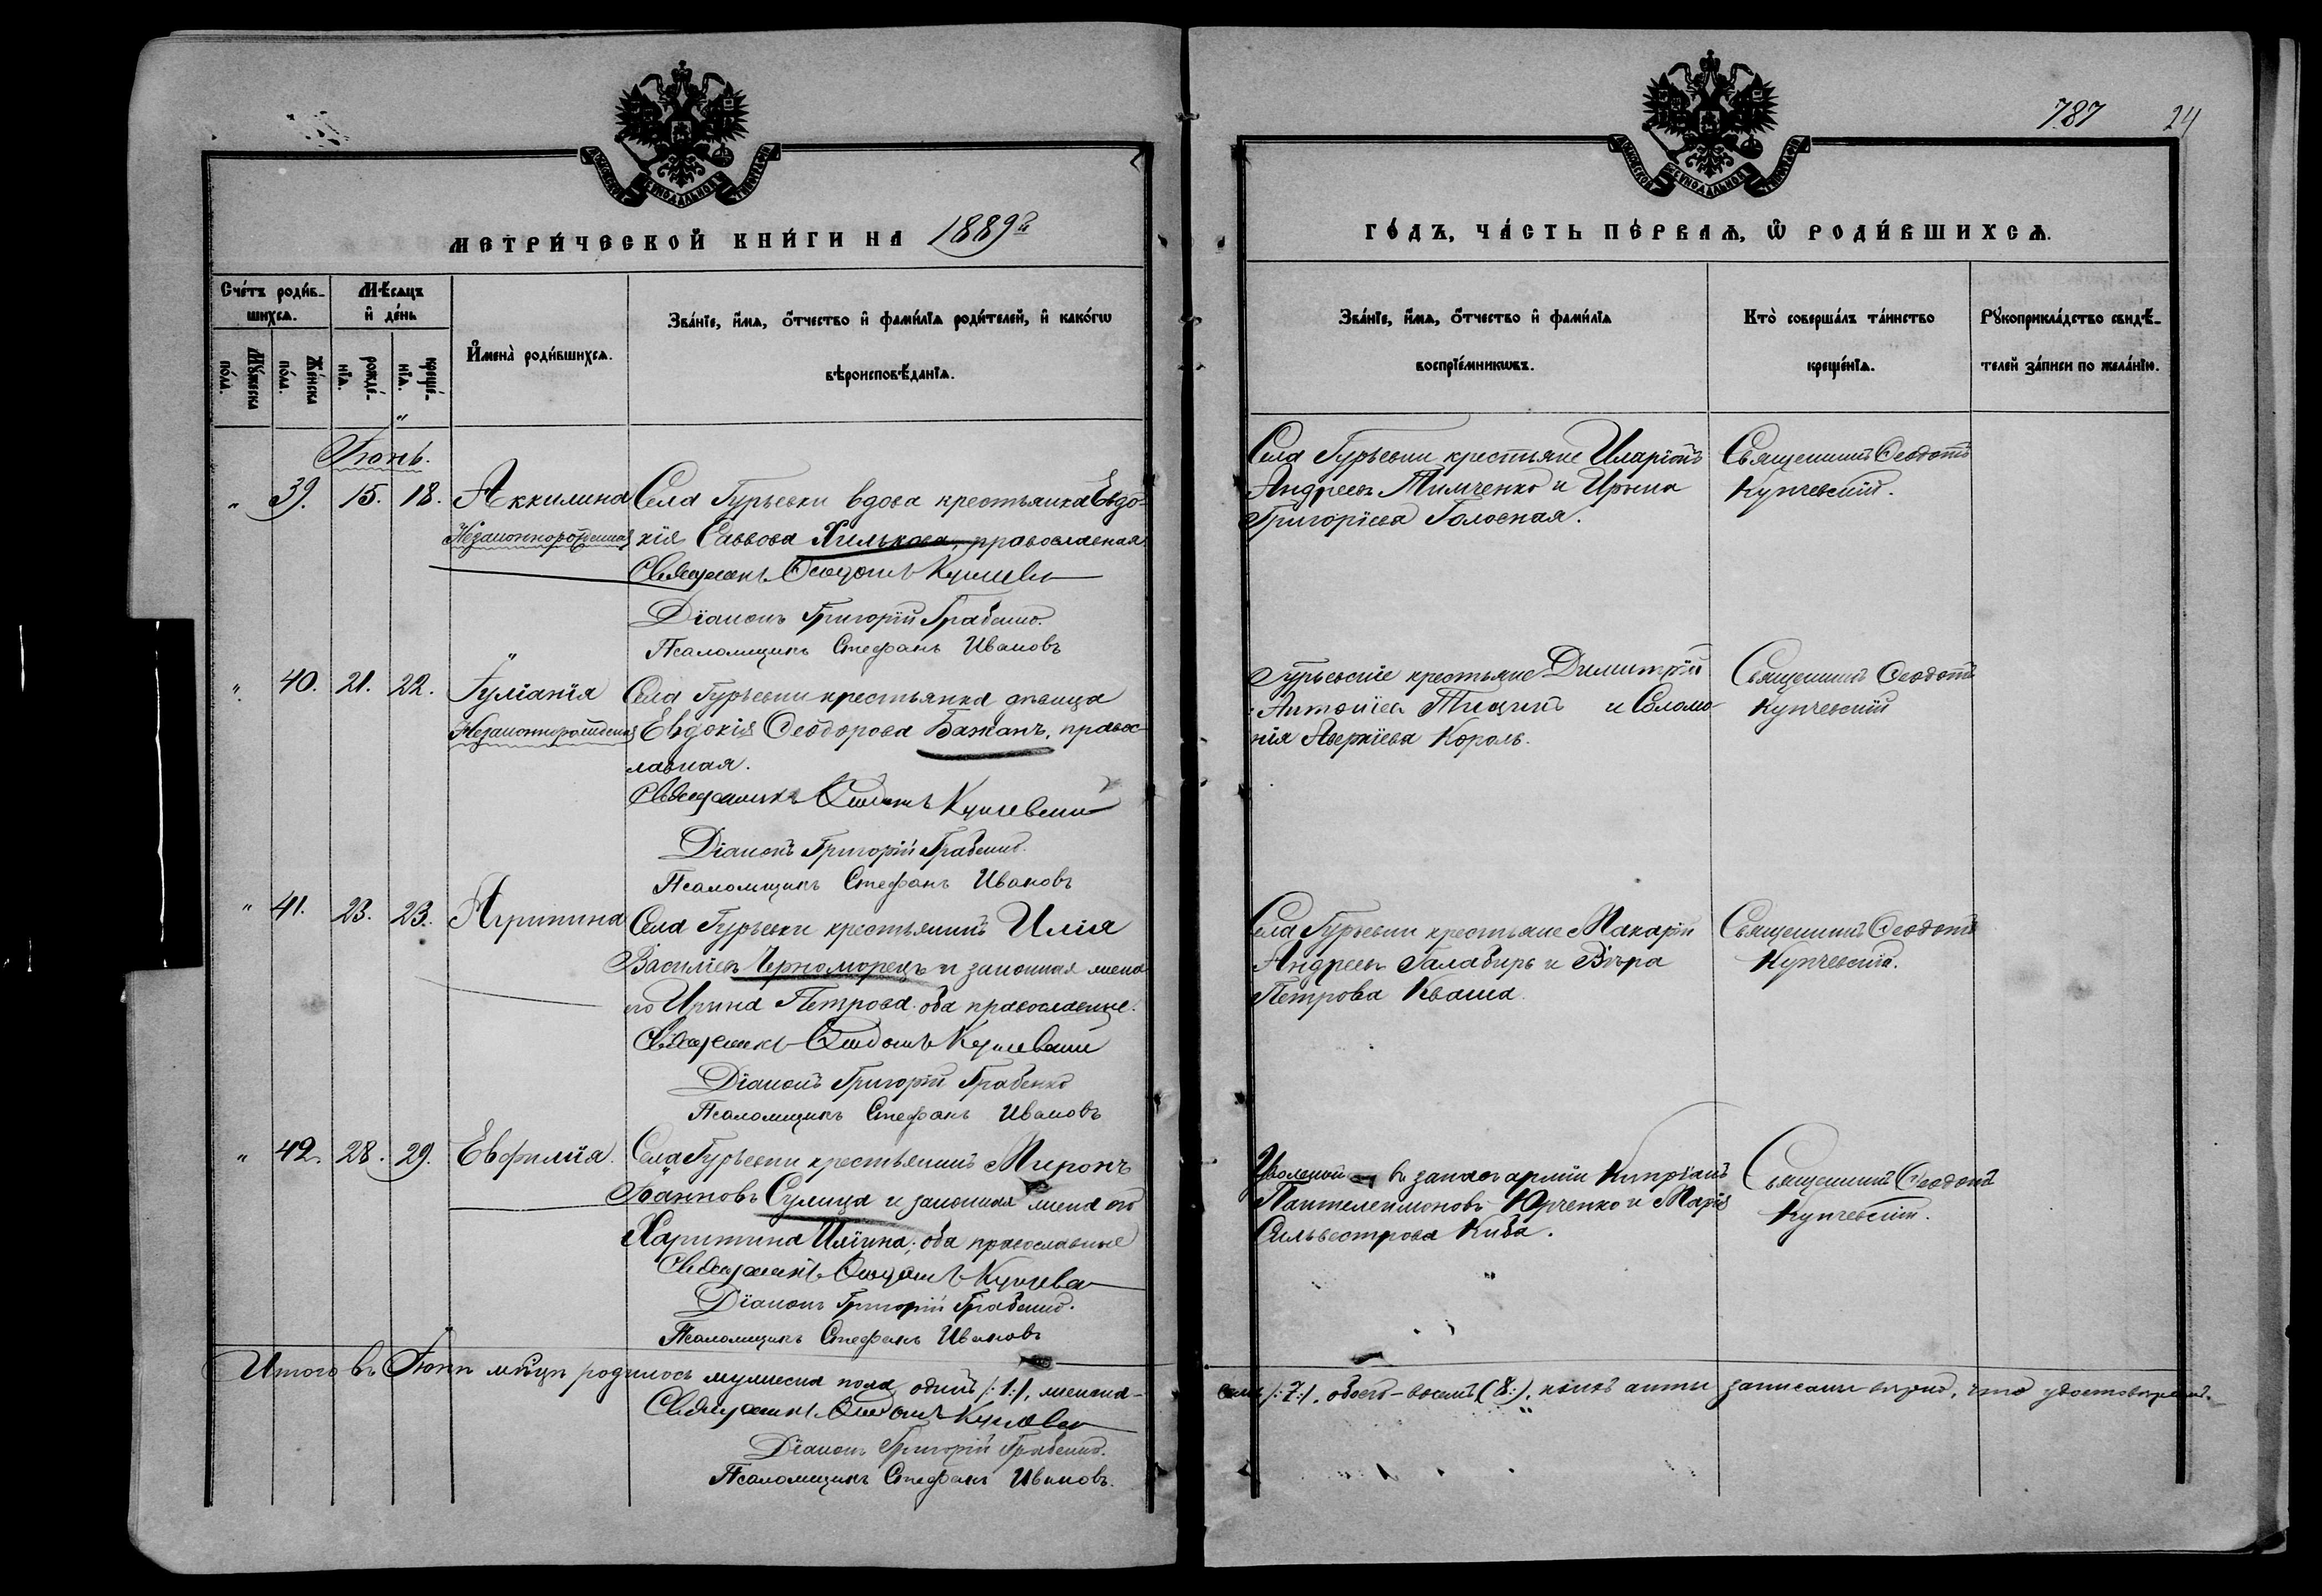 787 24
МОСКОВСКОЙ СѴНОДАЛЬНОЙ ТИПОГРАФІИ
МОСКОВСКОЙ СѴНОДАЛЬНОЙ ТИПОГРАФІИ
МЕТРИ́ЧЕСКОЙ КНИ́ГИ НА 1889й
ГО́ДЪ, ЧА́СТЬ ПЕ́РВАѦ, Ѿ РОДИ́ВШИХСѦ.
Сче́тъ роди́в-
шихсѧ.
Мѣ́сѧцъ
и҆ де́нь
Мꙋ́жеска
по́ла.
Же́нска
по́ла.
рожде́-
нїѧ.
креще́-
нїѧ.
И҆мена̀ роди́вшихсѧ.
Зва́нїе, и҆́мѧ, ѻ҆́тчество и҆ фами́лїѧ роди́телей, и҆ како́гѡ
вѣроисповѣ́данїѧ.
Зва́нїе, и҆́мѧ, ѻ҆́тчество и҆ фами́лїѧ
воспрїе́мникѡвъ.
Кто̀ соверша́лъ та́инство
креще́нїѧ.
Рꙋкоприкла́дство свидѣ́-
телей за́писи по жела́нїю.
Іюнь.
" 39. 15. 18. Аккилина
Незаконнорожденная
Села Гурьевки вдова крестьянка Евдо-
кія Саввова Хилькова, православная
Священникъ Ѳеодотъ Купчевскій
Діаконъ Григорій Грабенко.
Псаломщикъ Стефанъ Ивановъ
Села Гурьевки крестьяне Иларіонъ
Андреевъ Тимченко и Ирина
Григоріева Голосная.
Священникъ Ѳеодотъ
Купчевскій.
" 40. 21. 22. Іуліанія
Незаконнорожденная
Села Гурьевки крестьянка дѣвица
Евдокія Ѳеодорова Бажанъ, правос-
лавная.
Священникъ Ѳеодотъ Купчевскій
Діаконъ Григорій Грабенко.
Псаломщикъ Стефанъ Ивановъ
Гурьевскіе крестьяне Димитрій
Антоніевъ и Соломо-
нія Аверкіева Король.
Священникъ Ѳеодотъ
Купчевскій
" 41. 23. 23. Агрипина
Села Гурьевки крестьянинъ Илія
Василіевъ Черноморецъ и законная жена
его Ирина Петрова оба православные.
Священникъ Ѳеодотъ Купчевскій
Діаконъ Григорій Грабенко
Псаломщикъ Стефанъ Ивановъ
Села Гурьевки крестьяне Макарій
Андреевъ Галабиръ и Вѣра
Петрова Кваша.
Священникъ Ѳеодотъ
Купчевскій.
" 42. 28. 29. Евфилія.
Села Гурьевки крестьянинъ Миронъ
Іоанновъ Сулица и законная жена его
Харитина Иліина; оба православные
Священникъ Ѳеодотъ Купчевскій
Діаконъ Григорій Грабенко.
Псаломщикъ Стефанъ Ивановъ
Уволеной въ запасъ арміи Кипріанъ
Пантелеимоновъ Юрченко и Марія
Сильвестрова Киба.
Священникъ Ѳеодотъ
Купчевскій.
Итого въ Іюнѣ мѣцѣ родилось мужеска пола одинъ /:1:/, женска-
семь /:7:/. обоего-восемь (8:). коихъ акты записаны вѣрно, что удостовѣряемъ.
Священникъ Ѳеодотъ Купчевскій
Діаконъ Григорій Грабенко.
Псаломщикъ Стефанъ Ивановъ.